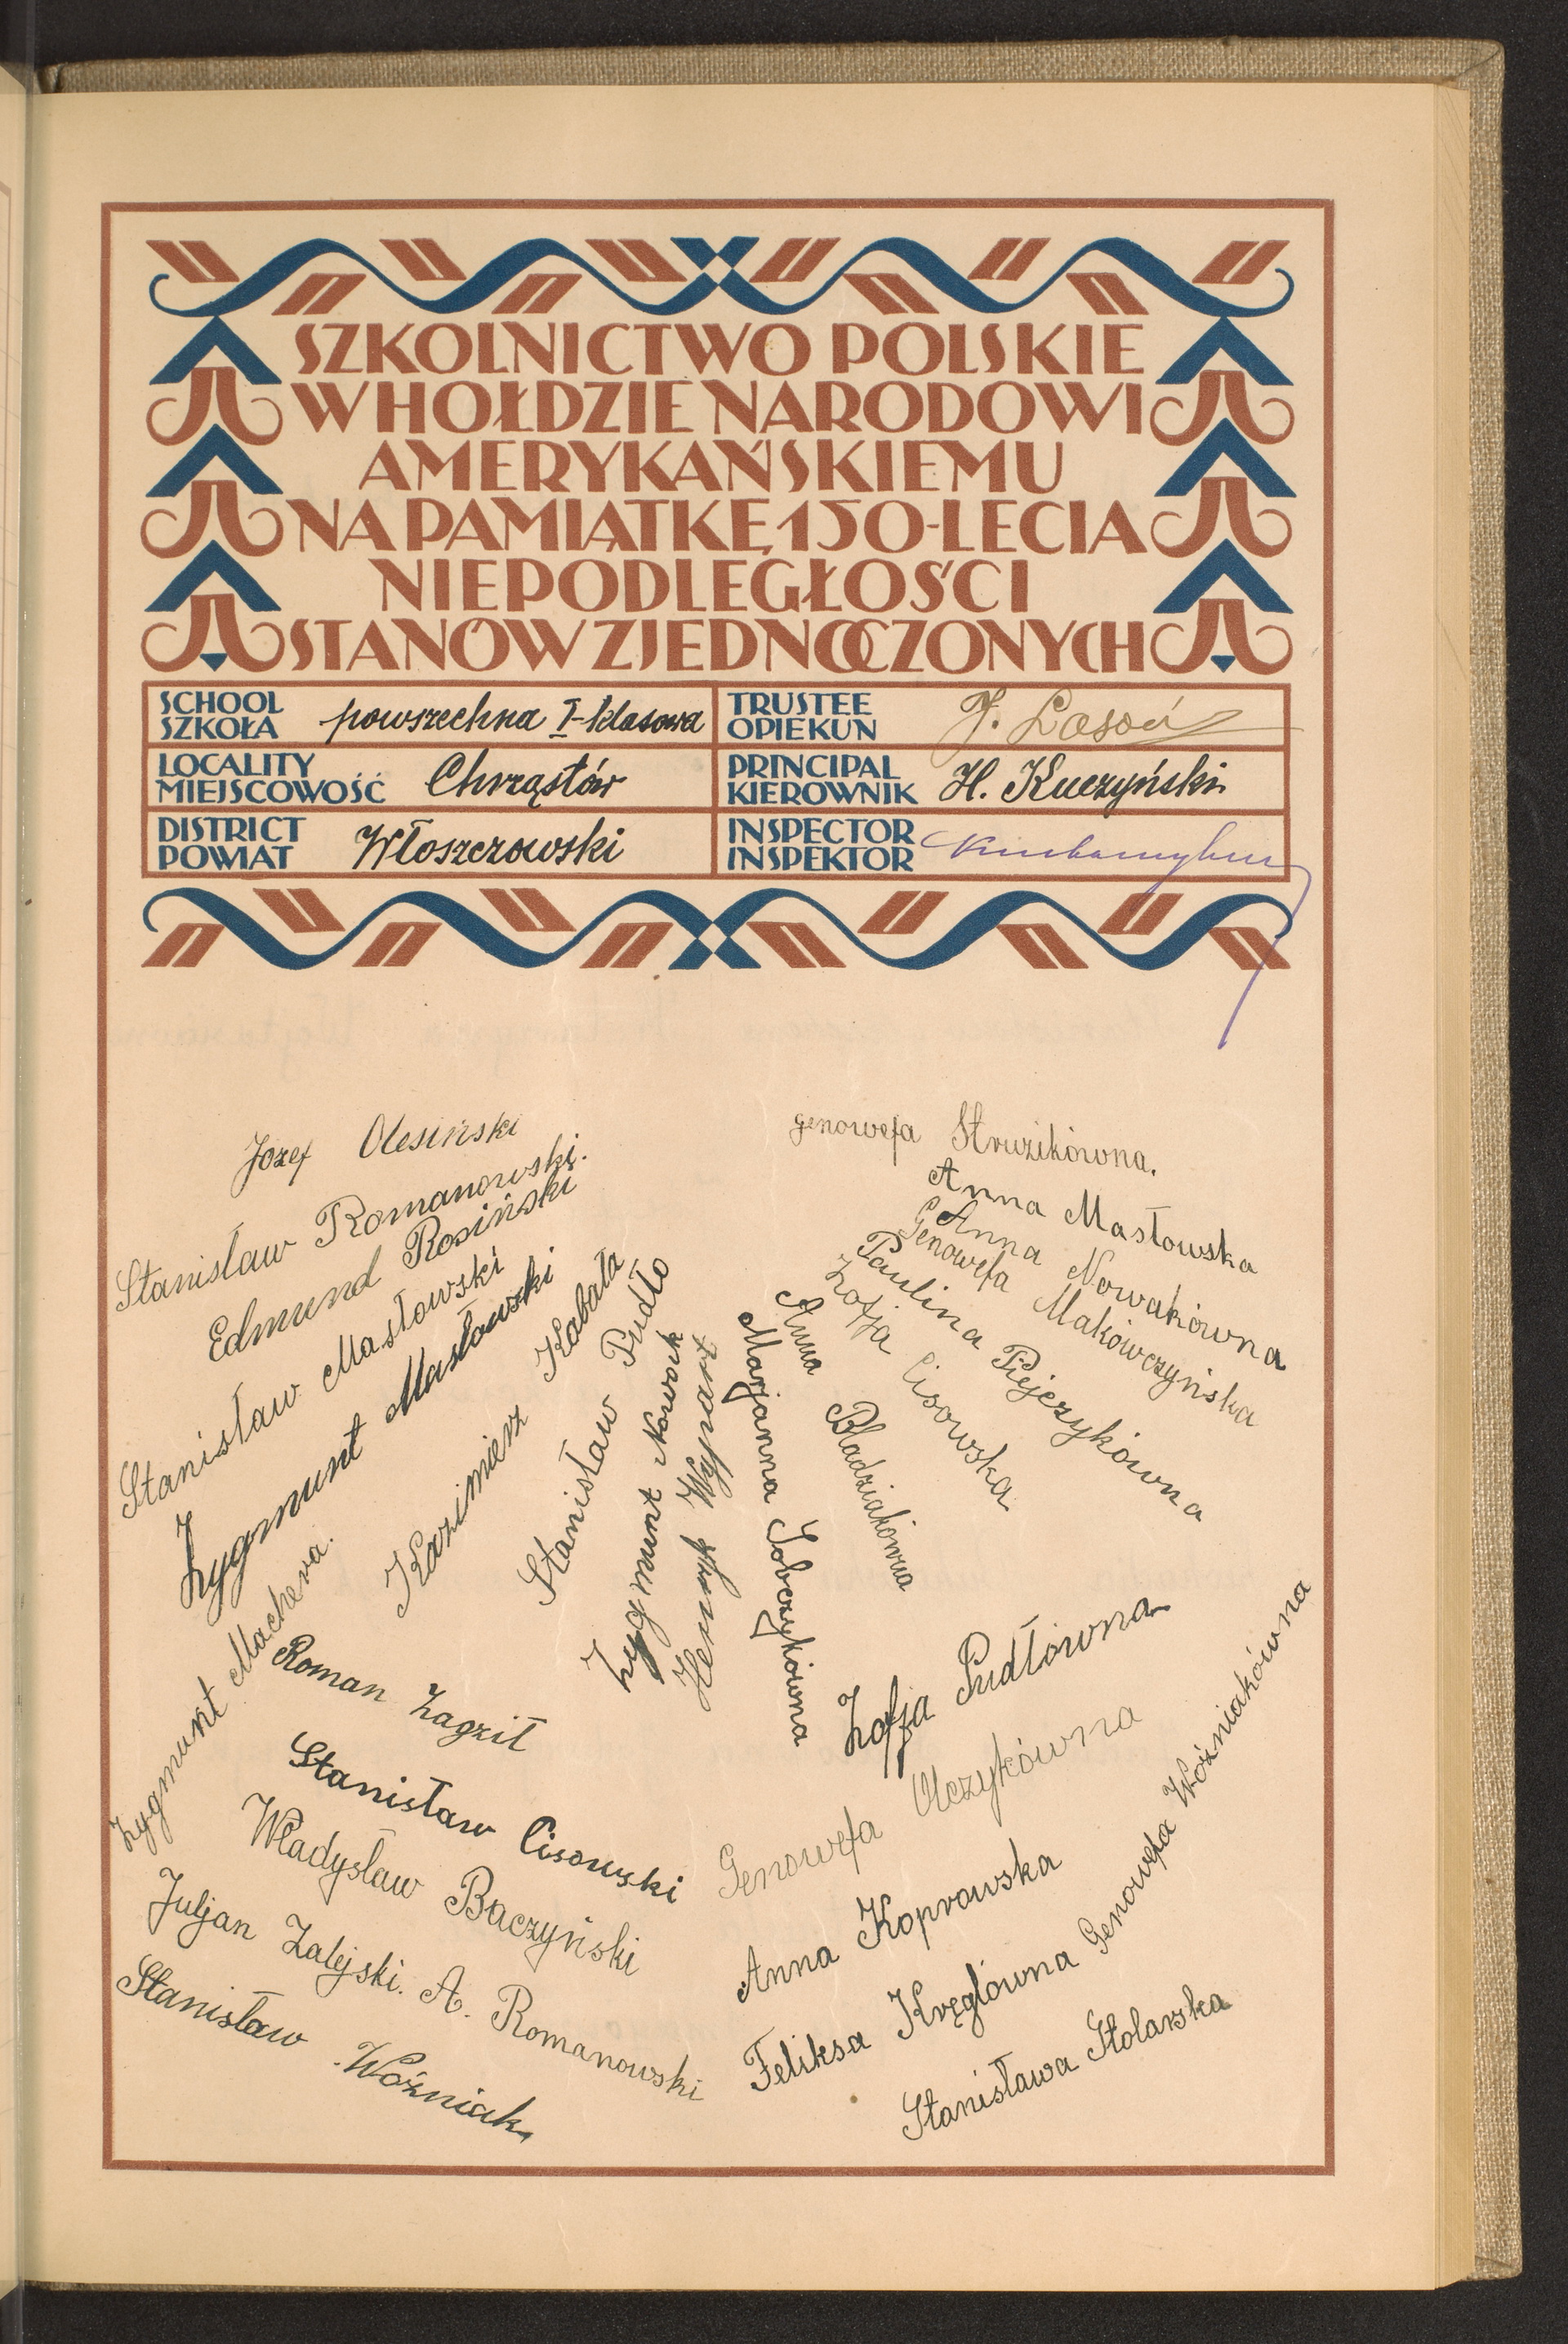 SZKOLNICTWO POLSKIE
W HOŁDZIE NARODOWI
AMERYKAŃSKIEMU
NA PAMIĄTKĘ 150-LECIA
NIEPODLEGŁOŚCI
STANÓW ZJEDNOCZONYCH
SCHOOL
SZKOŁA powszechna I-klasowa
TRUSTEE
OPIEKUN J. Lasoń
LOCALITY
MIEJSCOWOŚĆ Chrząstów
PRINCIPAL
KIEROWNIK H. Kuczyński
DISTRICT
POWIAT Włoszczowski
INSPECTOR
INSPEKTOR
Józef Olesiński
Stanisław Romanowski.
Edmund Rosiński
Stanisław Masłowski
Zygmunt Masłowski
Zygmunt Machera.
Kazimierz Kabała
Stanisław Pudło
Zygmunt Nowak
Henryk Wypart
Genowefa Struzikówna.
Anna Masłowska
Anna Nowakówna
Genowefa Makówczyńska
Paulina Piejczykówna
Zofja Cisowska
Anna Bladziakówna
Marjanna Sobczykówna
Roman Zagził
Stanisław Cisowski
Władysław Baczyński
Juljan Zalejski.
A. Romanowski
Stanisław Woźniak
Zofja Pudłówna
Genowefa Olczykówna
Anna Koprowska
Feliksa Kręglówna
Genowefa Woźniakówna
Stanisława Stolarska